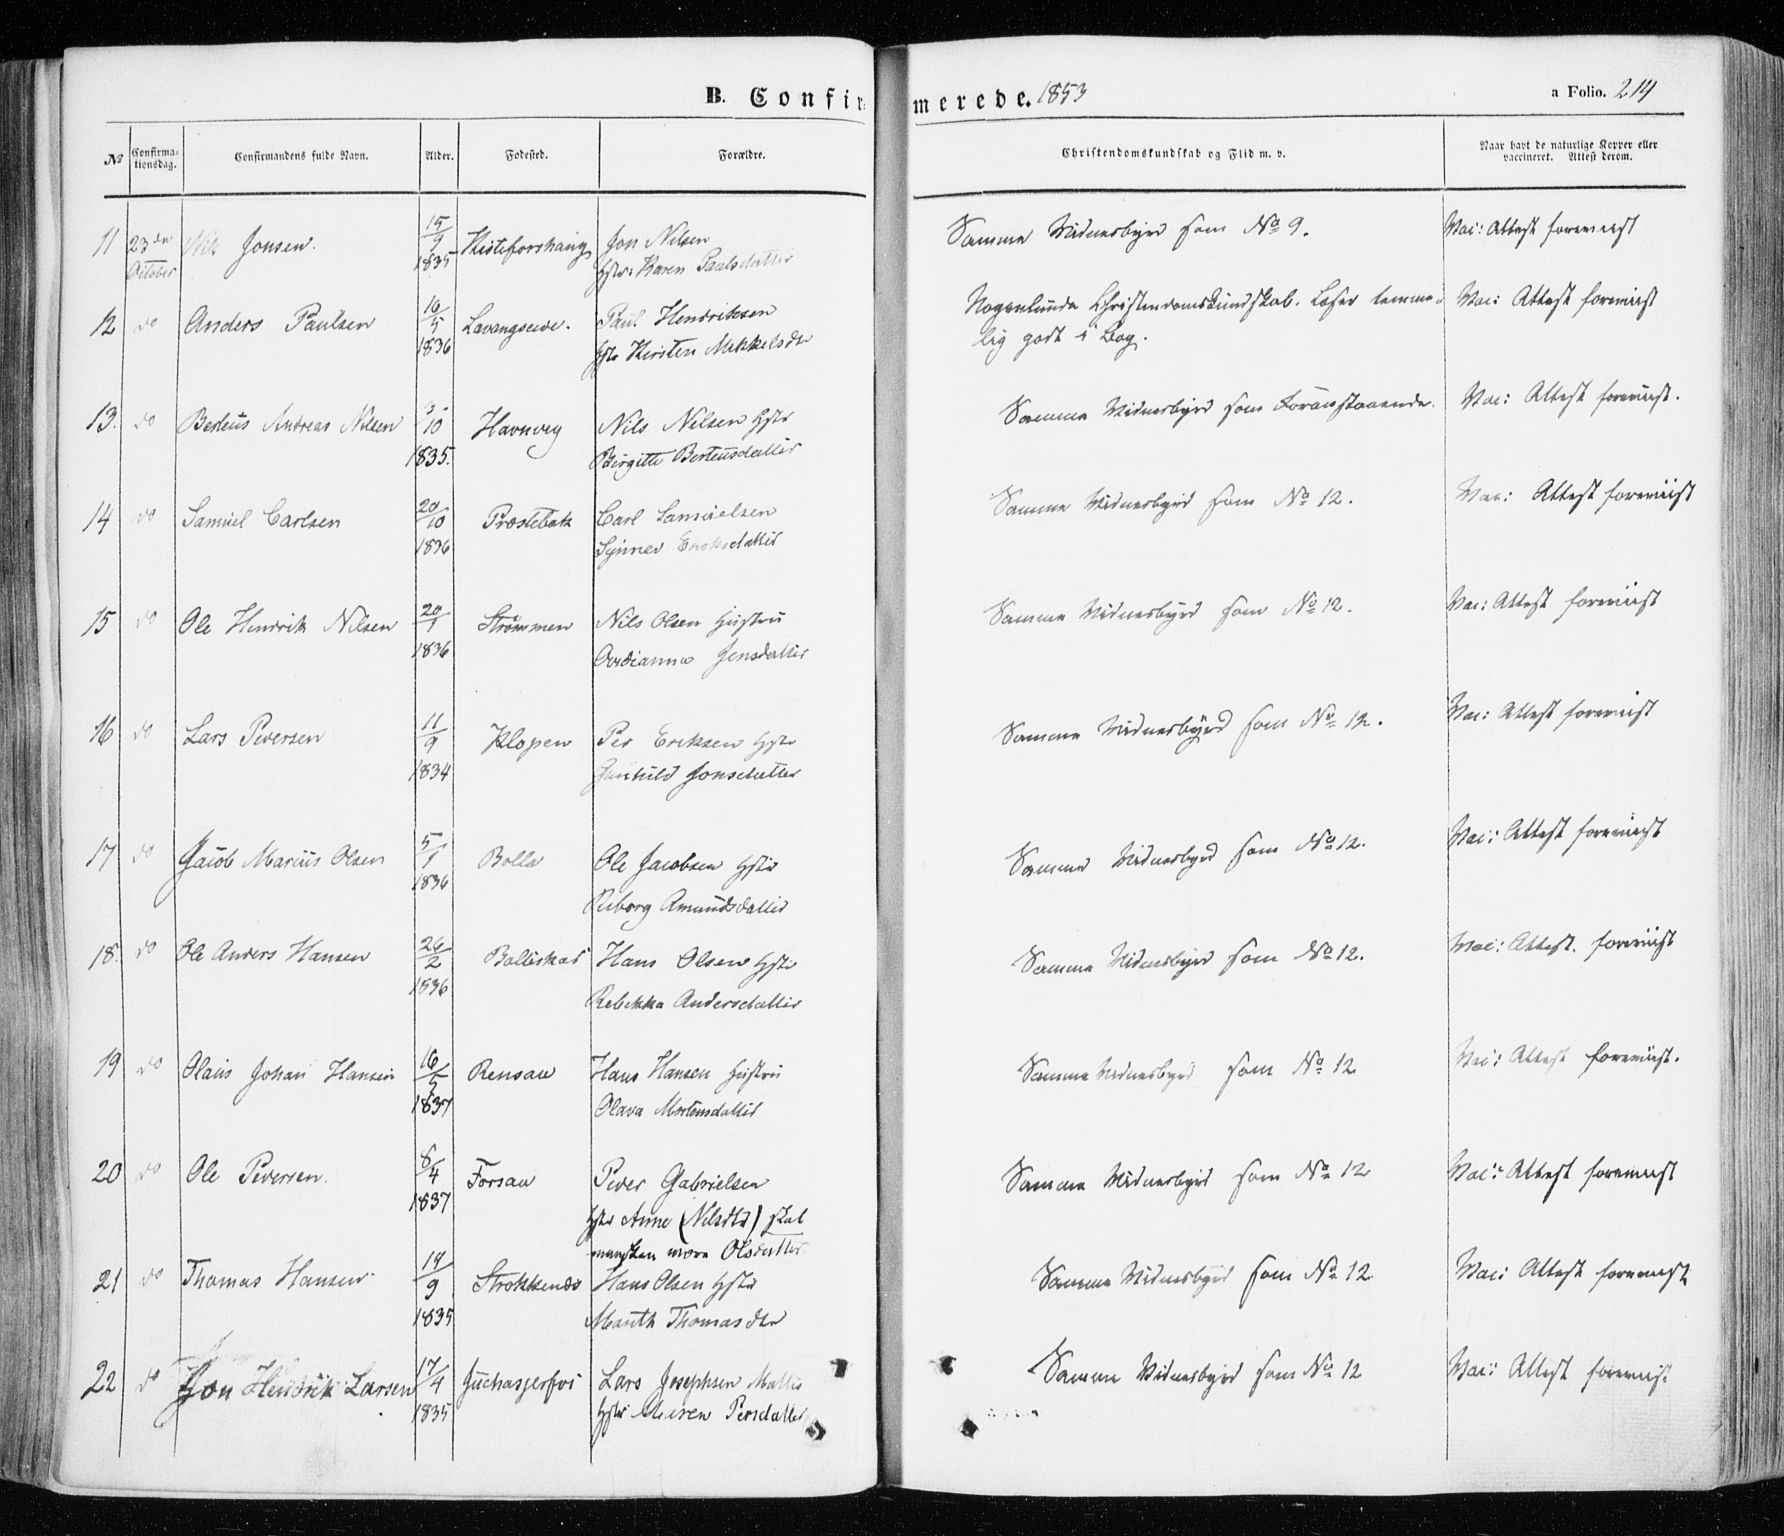 B. Confirmerede. 1853 a Folio. 214
№ Confirmationsdag. Confirmandens fulde Navn. Alder. Fødested. Forældre. Christendomskundskab og Flid m. v. Naar havt de naturlige Kopper eller vaccineret. Attest derom.
11 23de October Nils Jonsen. 15/9 1835 Jon Nilsen Samme Vidnesbyrd som No 9. Vac: Attest foreviist
Hstr: Karen Paulsdatter
12 do Anders Paulsen 16/5 1836 Lavangseide. Paul Hendriksen Nogenlunde Christendomskundskab. Læser temme- Vac: Attest foreviist
Hstr Kirsten Mikkelsdtr lig godt i Bog.
13. do Berteus Andreas Nilsen 3/10 1835. Havnveg Nils Nilsen Hstr Samme Vidnesbyrd som Foranstaaende. Vac: Attest foreviist.
Birgitte Berteusdatter
14 do Samuel Carlsen 20/10 1836 Præstebak Carl Samuelsen Samme Vidnesbyrd som No 12. Vac: Attest foreviist
Synnev Enoksdatter
15 do Ole Hendrik Nilsen 20/1 1836 Strømmen Nils Olsen Hustru Samme Vidnesbyrd som No 12. Vac: Attest foreviist
Jensdatter
16 do Lars Pedersen 11/9 1834 Klopen Per Eriksen Hstr Samme Vidnesbyrd som No 12. Vac: Attest foreviist
Gunhild Jonsdatter
17 do Jacob Marius Olsen 5/1 1836 Bolle Ole Jacobsen Hstr Samme Vidnesbyrd som No 12. Vac: Attest foreviist
Riborg Amundsdatter
18. do Ole Anders Hansen 26/2 1836 Balteskar Hans Olsen Hstr Samme Vidnesbyrd som No 12. Vac: Attest. foreviist
Rebekka Andersdatter
19 do Olaus Johan Hansen 16/5 1837 Rensaa Hans Hansen Hustru Samme Vidnesbyrd som No 12 Vac: Attest foreviist.
Olava Mortensdatter
20 do Ole Pedersen. 8/4 1837 Forsaa Peder Gabrielsen Samme Vidnesbyrd som No 12 Vac: Attest foreviist
Hstr Anne (Nilsdtr) skal
maaskee være Olsdatter
21 do Thomas Hansen 14/9 1835 Strokkenæs Hans Olsen Hstr Samme Vidnesbyrd som No 12. Vac: Attest foreviist
Marith Thomasdtr
22 do Jon Hendrik Larsen 17/4 1835 Lars Josephsen Samme Vidnesbyrd som No 12 Vac: Attest foreviist
Hstr Maren Persdatter